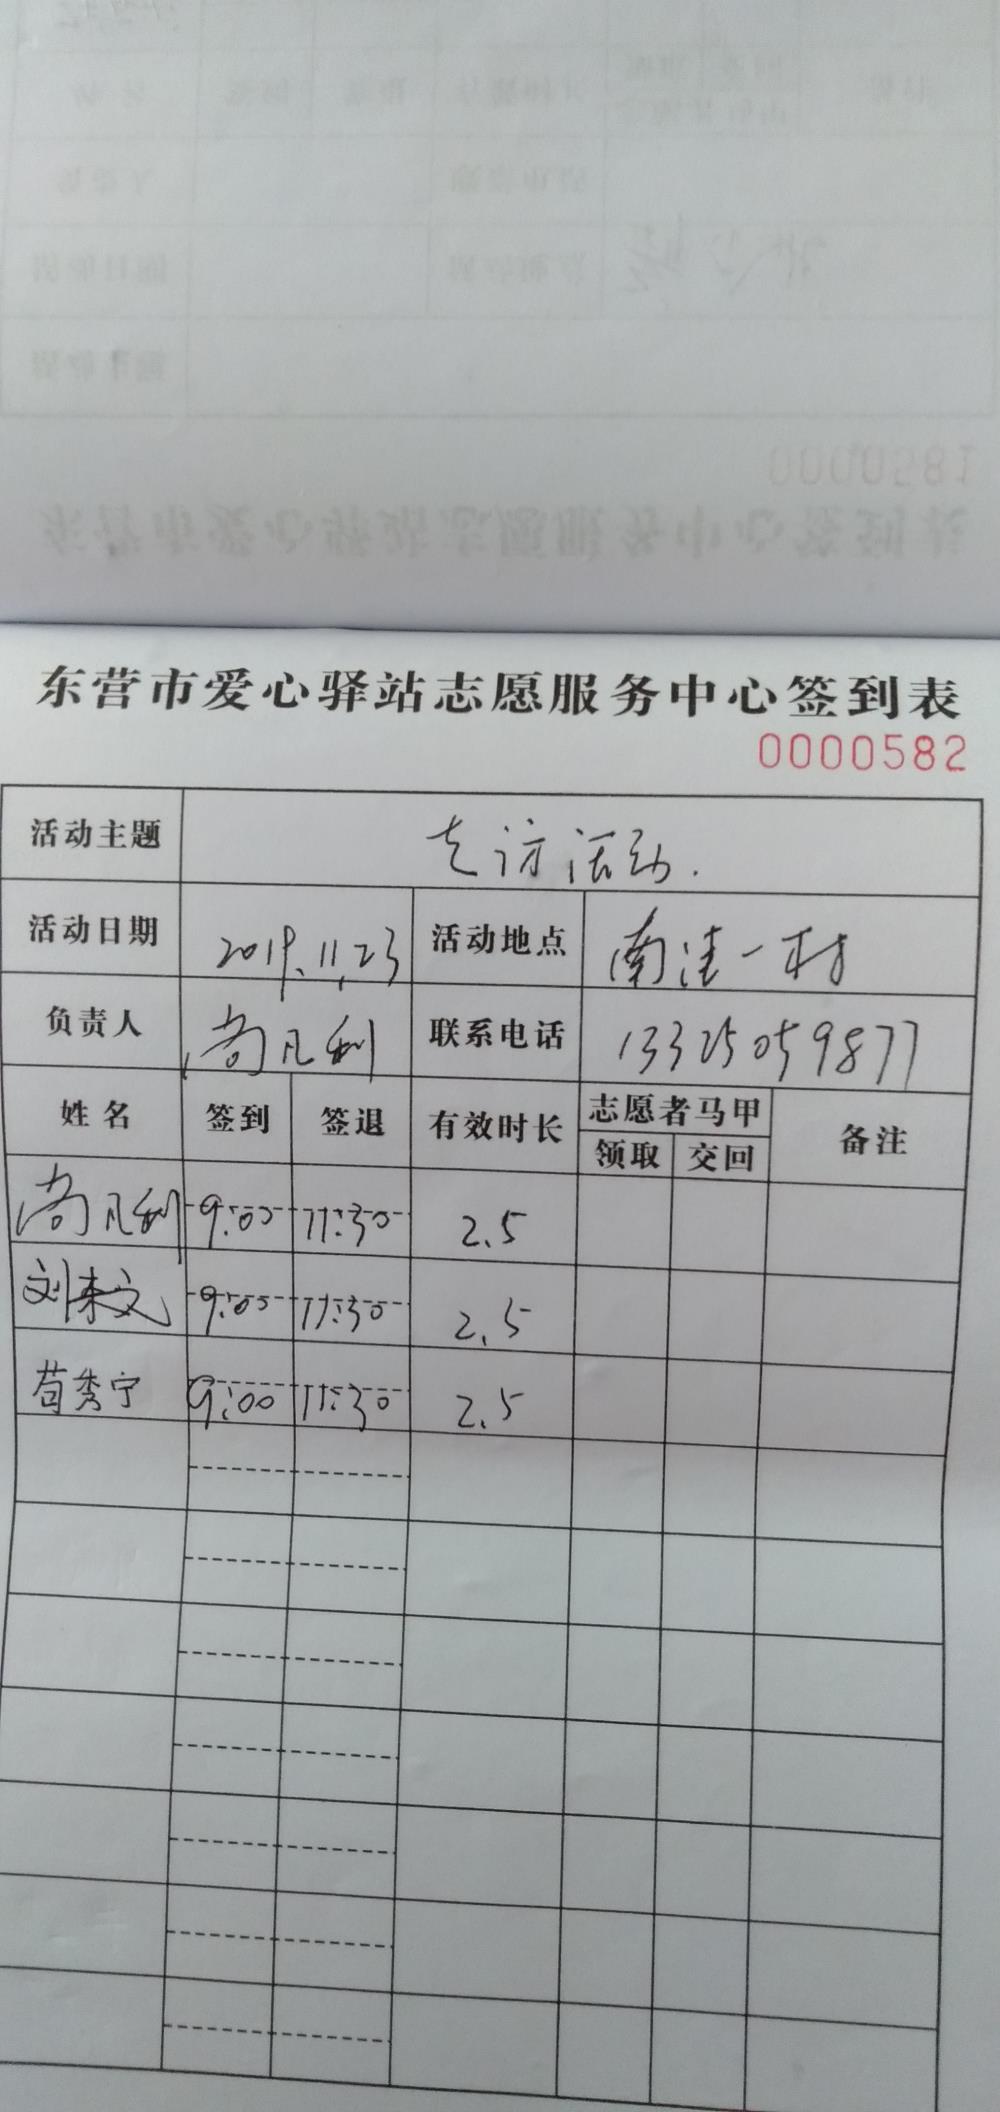 东营市爱心驿站志愿服务中心签到表
0000582
活动主题 走访活动.
活动日期 2019.11.23 活动地点 南洼一村
负责人 尚凡利 联系电话 13325059877
姓名 签到 签退 有效时长 志愿者马甲 备注
领取 交回
尚凡利 9:00 11:30 2.5
刘来文 9:00 11:30 2.5
苟秀宁 9:00 11:30 2.5